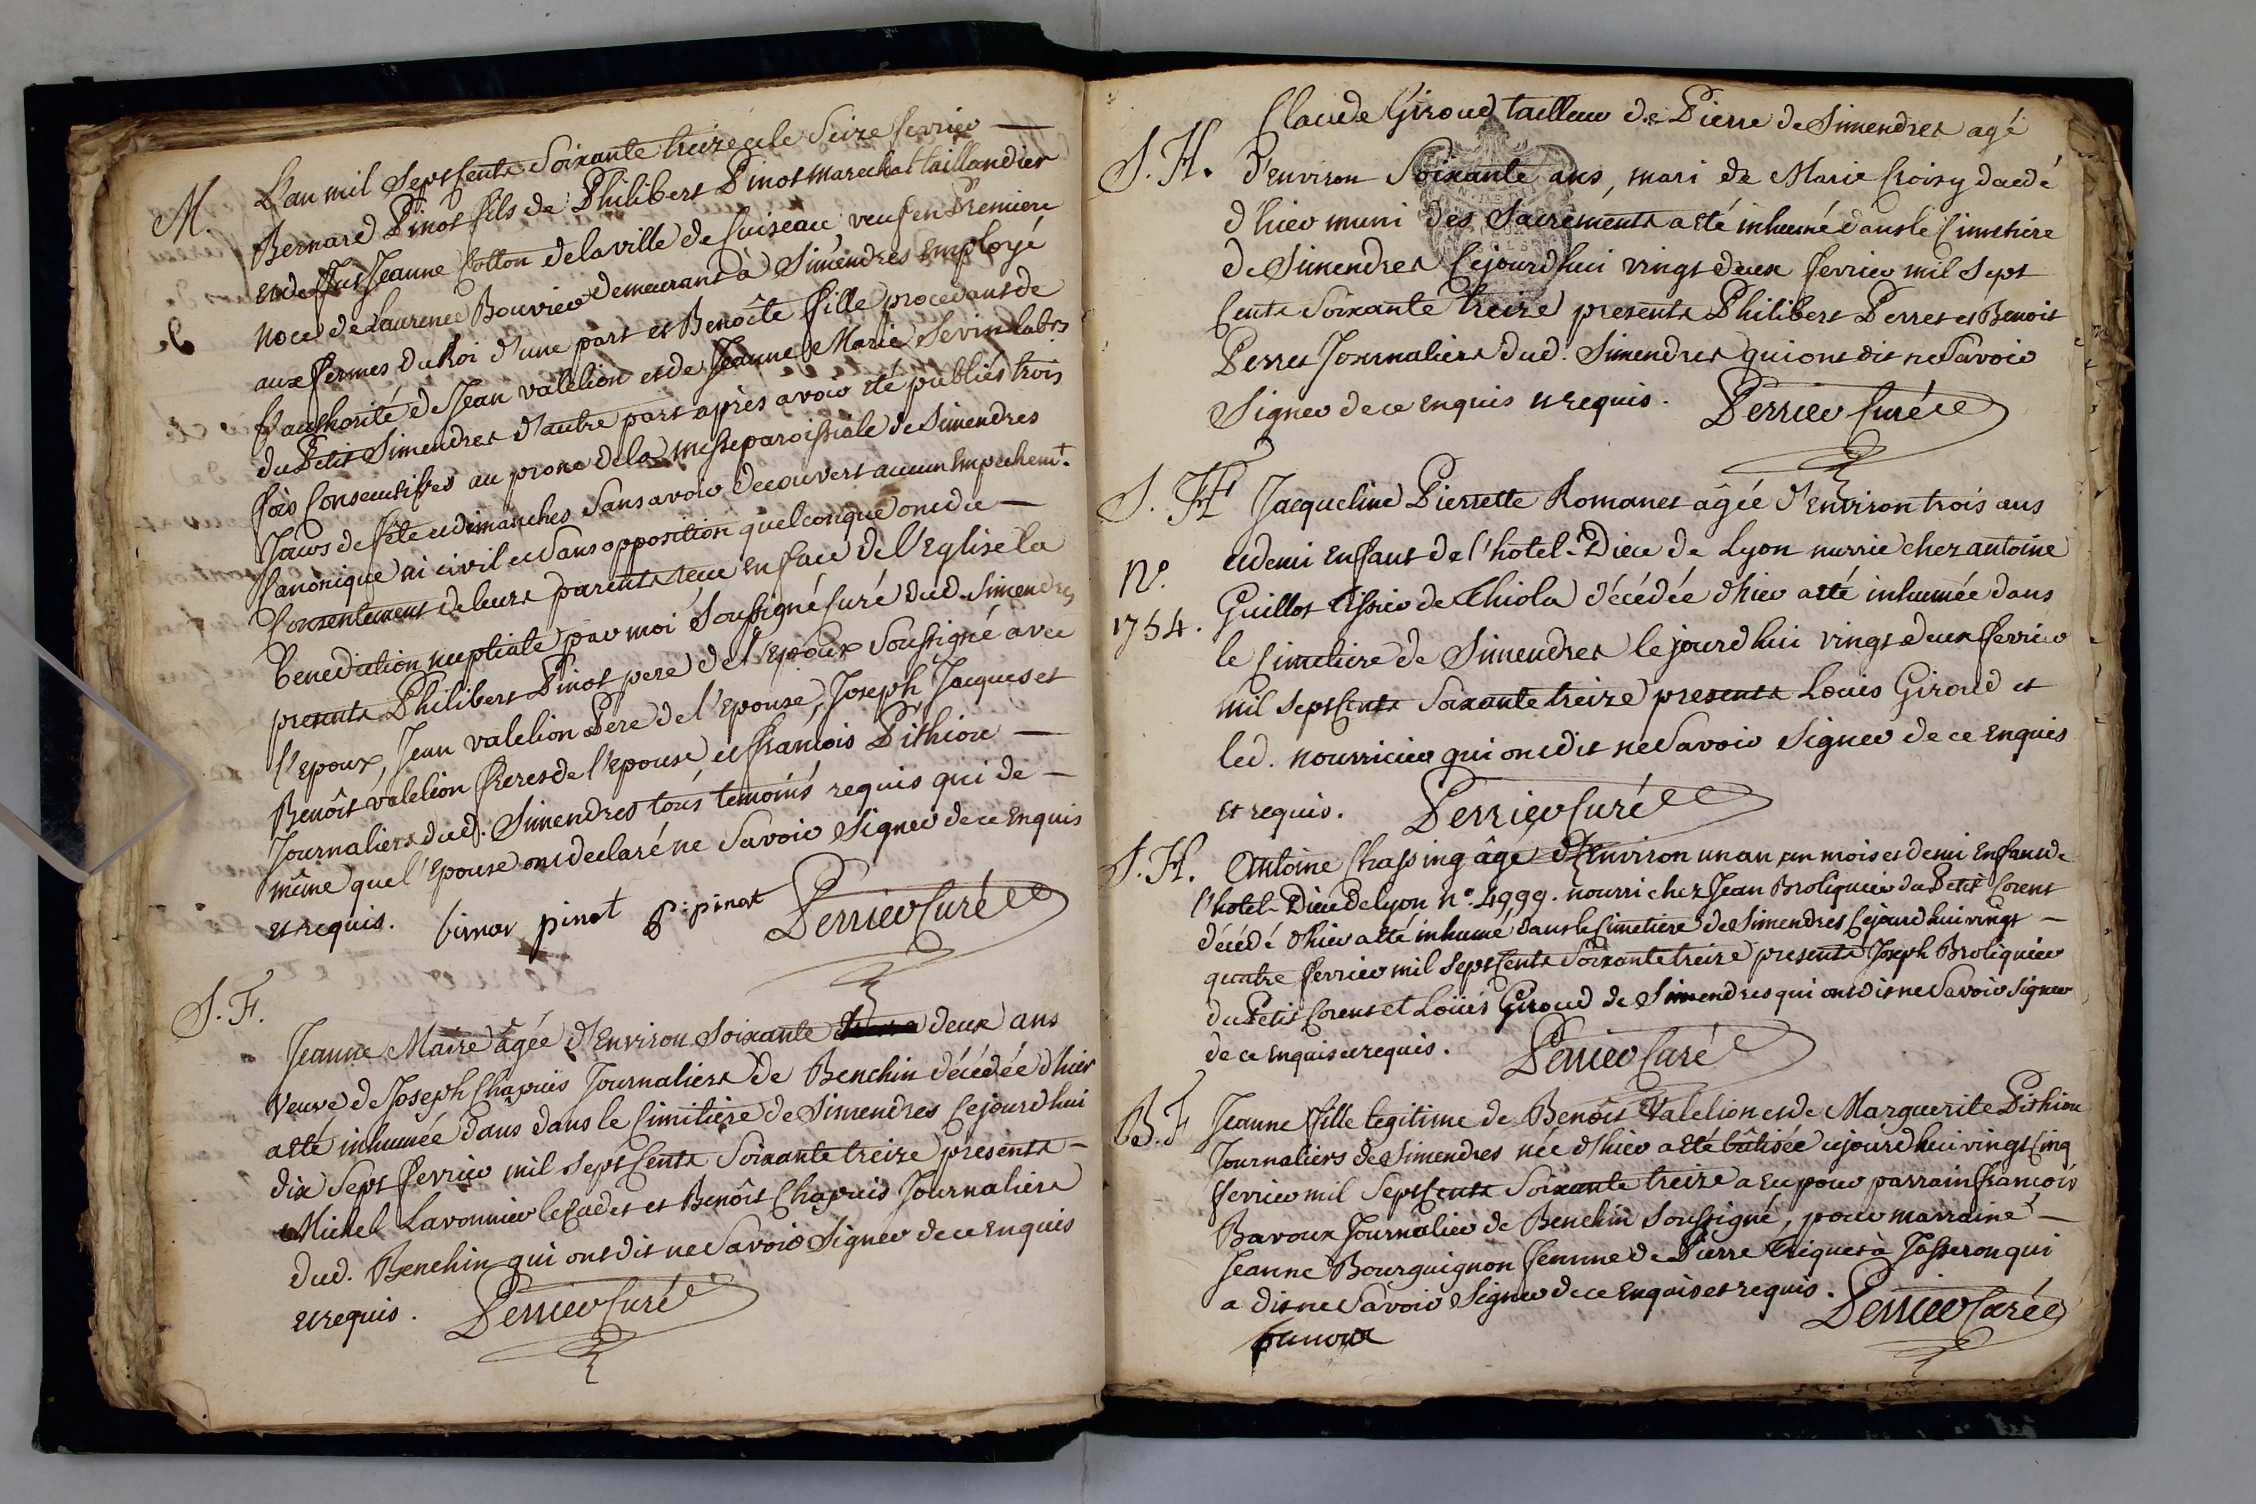 M.
L'an mil sept cents soixante treize et le seize fevrier
Bernard Pinot fils de Philibert Pinot marechal taillandier
et de fut Jeanne Cotton de la ville de Cuiseau veuf en premiere
noce de Laurence Bouvier demeurant à Simendres employé
aux fermes du Roi d'une part et Benoîte fille procedant de
l'authorité de Jean valelion et de Jeanne Marie Sevin labrs
du Petit Simendres d'autre part après avoir été publiés trois
fois consecutifves au prone de la messe paroissiale de Simendres
Jours de fête et dimanches sans avoir decouvert aucun empechemt.
Canonique ni civil et sans opposition quelconque ont du
Consentement de leurs parents recu en face de l'Eglise la
benediction nuptiale par moi soussigné Curé dud. Simendres
presents Philibert Pinot pere de l'epoux soussigné avec
l'epoux, Jean valelion Pere de l'epouse, Joseph, Jacques et
Benoît valelion freres de l'epouse et francois Pithion
Journaliers dud. Simendres tous temoins requis qui de
même que l'epouse ont declaré ne savoir signer de ce enquis
et requis. binar pinot p: pinot Perrier Curé
S. F.
Jeanne Maire âgée d'Environ soixante deux ans
veuve de Joseph Chapuis Journaliers de Benchin décédée d'hier
a été inhumée dans dans le Cimitière de Simendres Cejourdhui
dix sept fevrier mil sept Cents soixante treize presents
Michel Lavonnier le Cadet et Benôit Chapuis Journaliers
dud. Benchin qui ont dit ne savoir signer de ce enquis
et requis. Perrier Curé
S. H.
Claude Giroud tailleur de Pierre de Simendres agé
d'environ soixante ans, mari de Marie Croisy dacdé
d'hier muni des sacrements a été inhumé dans le Cimetiere
de Simendres Cejourdhui vingt deux fevrier mil sept
Cents soixante treize presents Philibert Perret et Benoit
Perret Journaliers dud. Simendres qui ont dit ne savoir
signer de ce enquis et requis. Perrier Curé
S. H
Jacqueline Pierrette Romanet âgée d'Environ trois ans
N°.
et demi enfant de l'hotel-Dieu de Lyon nurrie chez antoine
1754.
Guillot tissier de Chiola décédée d'hier a été inhumée dans
le Cimetiere de Simendres le jourdhui vingt deux fevrier
mil sept Cents soixante treize presents Louis Giroud et
led. nourricier qui ont dit ne savoir signer de ce enquis
et requis. Perrier Curé
S. H.
Antoine Chassing âgé d'Environ un an un mois et demi Enfant de
l'hotel-Dieu de lyon n°. 4999. nourri chez Jean Broliquier du Petit Corent
décédé d'hier a été inhumé dans le Cimetiere de Simendres Cejourdhui vingt
quatre fevrier mil sept Cents soixante treize presents Joseph Broliquier
du Petit Corent et Loüis Giroud de Simendres qui ont dit ne savoir signer
de ce enquis et requis. Perrier Curé
B. F
Jeanne fille legitime de Benôit Valelion et de Marguerite Pithion
Journaliers de Simendres née d'hier a été bâtisée cejourdhui vingt Cinq
fevrier mil sept Cents soixante treize a eu pour parrain francois
Bavoux Journalier de Benchin soussigné, pour marraine
Jeanne Bourguignon femme de Pierre Triquet à Jasseron qui
a dit ne savoir signer de ce enquis et requis. Perrier Curé